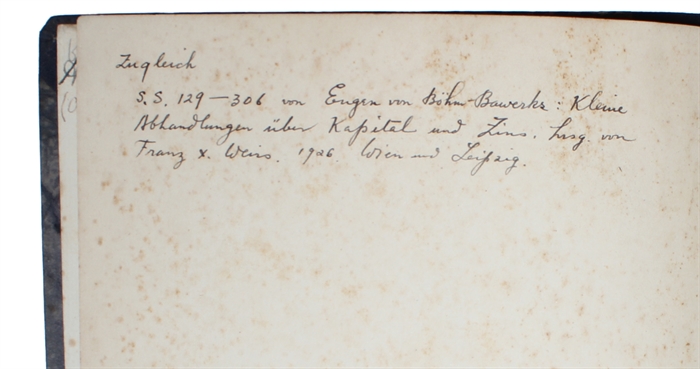 Zugleich
S.S. 129–306 von Eugen von Böhm-Bawerks: Kleine
Abhandlungen über Kapital und Zins. hrsg. von
Franz X. Weiss. 1926 Wien und Leipzig.